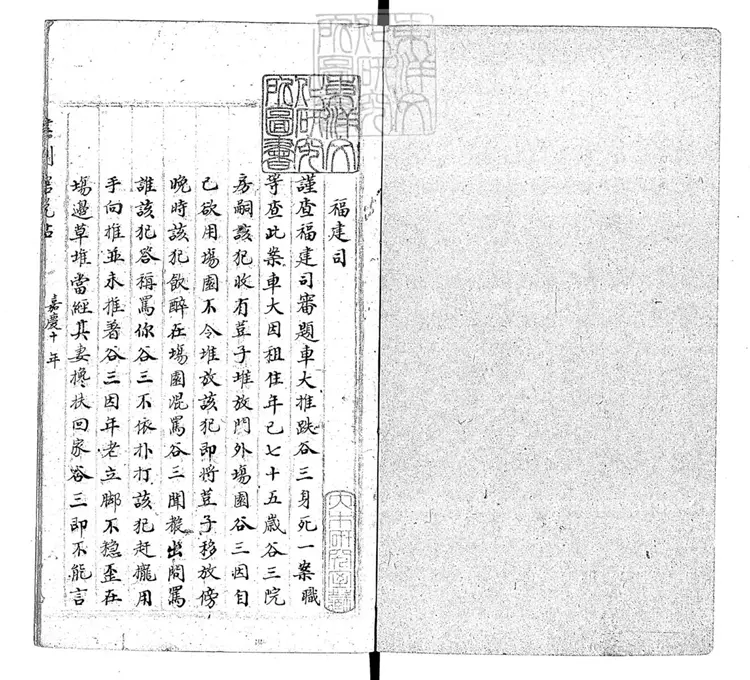 福建司
謹查福建司審題車大推跌谷三身死一案職
等查此案車大因租住年已七十五歲谷三院
房嗣該犯收有荳子堆放門外場園谷三因自
已欲用場園不令堆放該犯即將荳子移放傍
晚時該犯飲醉在場園混罵谷三聞聲出問罵
誰該犯答稱罵你谷三不依扑打該犯赶攏用
手向推並未推著谷三因年老立脚不穩歪在
場邊草堆當經其妻攙扶回家谷三即不能言
嘉慶十年
東洋文化研究所圖書
東洋文化研究所圖書